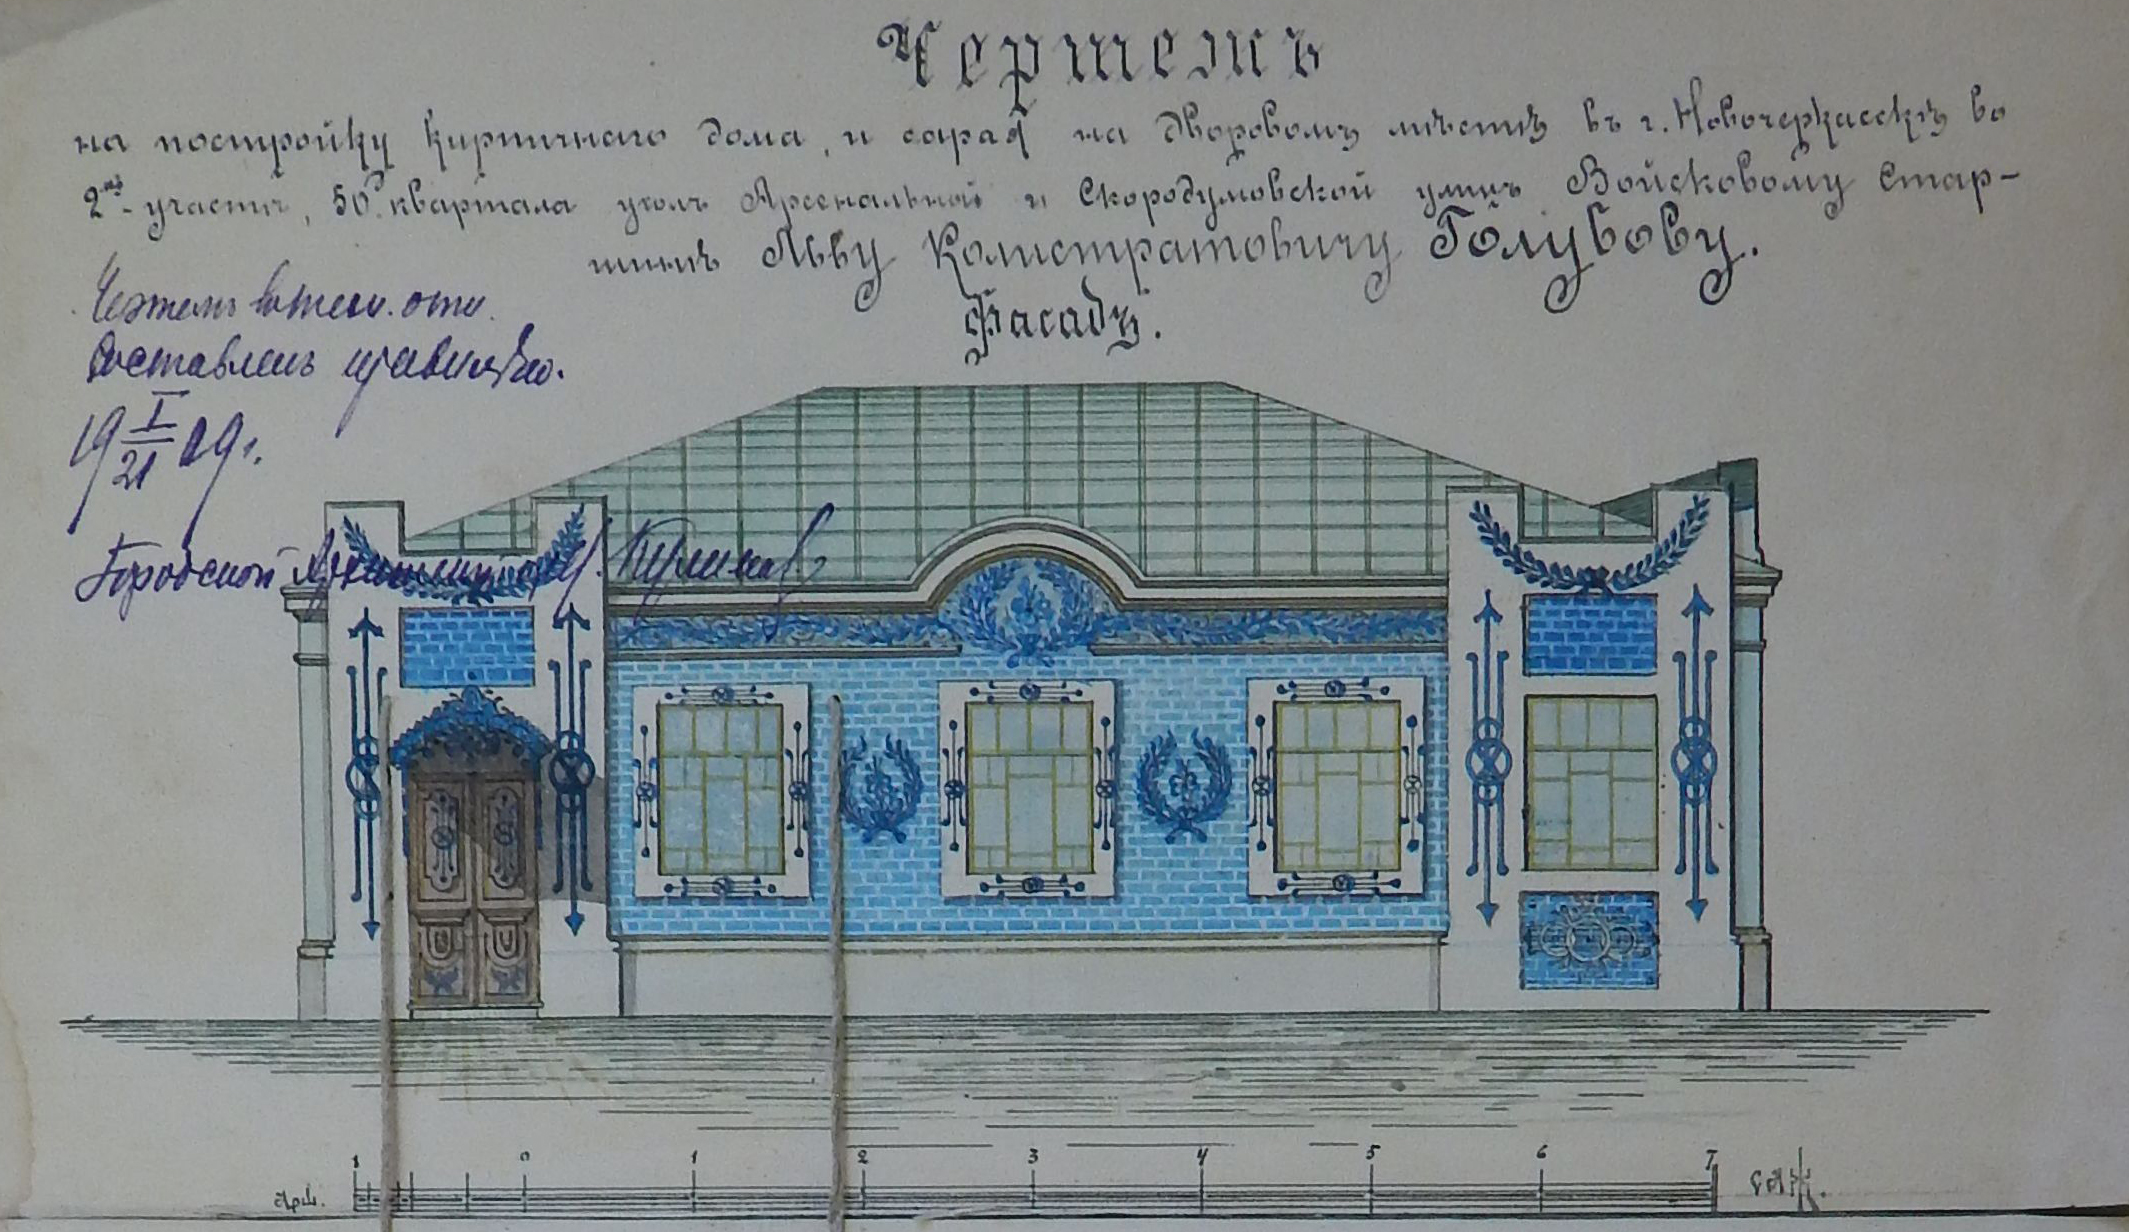 Чертежъ
на постройку кирпичнаго дома, и сарая на дворовомъ мѣстѣ въ г. Новочеркасскѣ во
2мъ участкѣ, 50го квартала уголъ Арсенальной и Скородумовской улицъ Войсковому Стар-
шинѣ Льву Калистратовичу Голубову.
Фасадъ.
Чертежъ въ техн. отн.
Составленъ правильно.
19 I/21 09 г.
Городской Архитекторъ Куликовъ
1 0 1 2 3 4 5 6 7
Арш. саж.